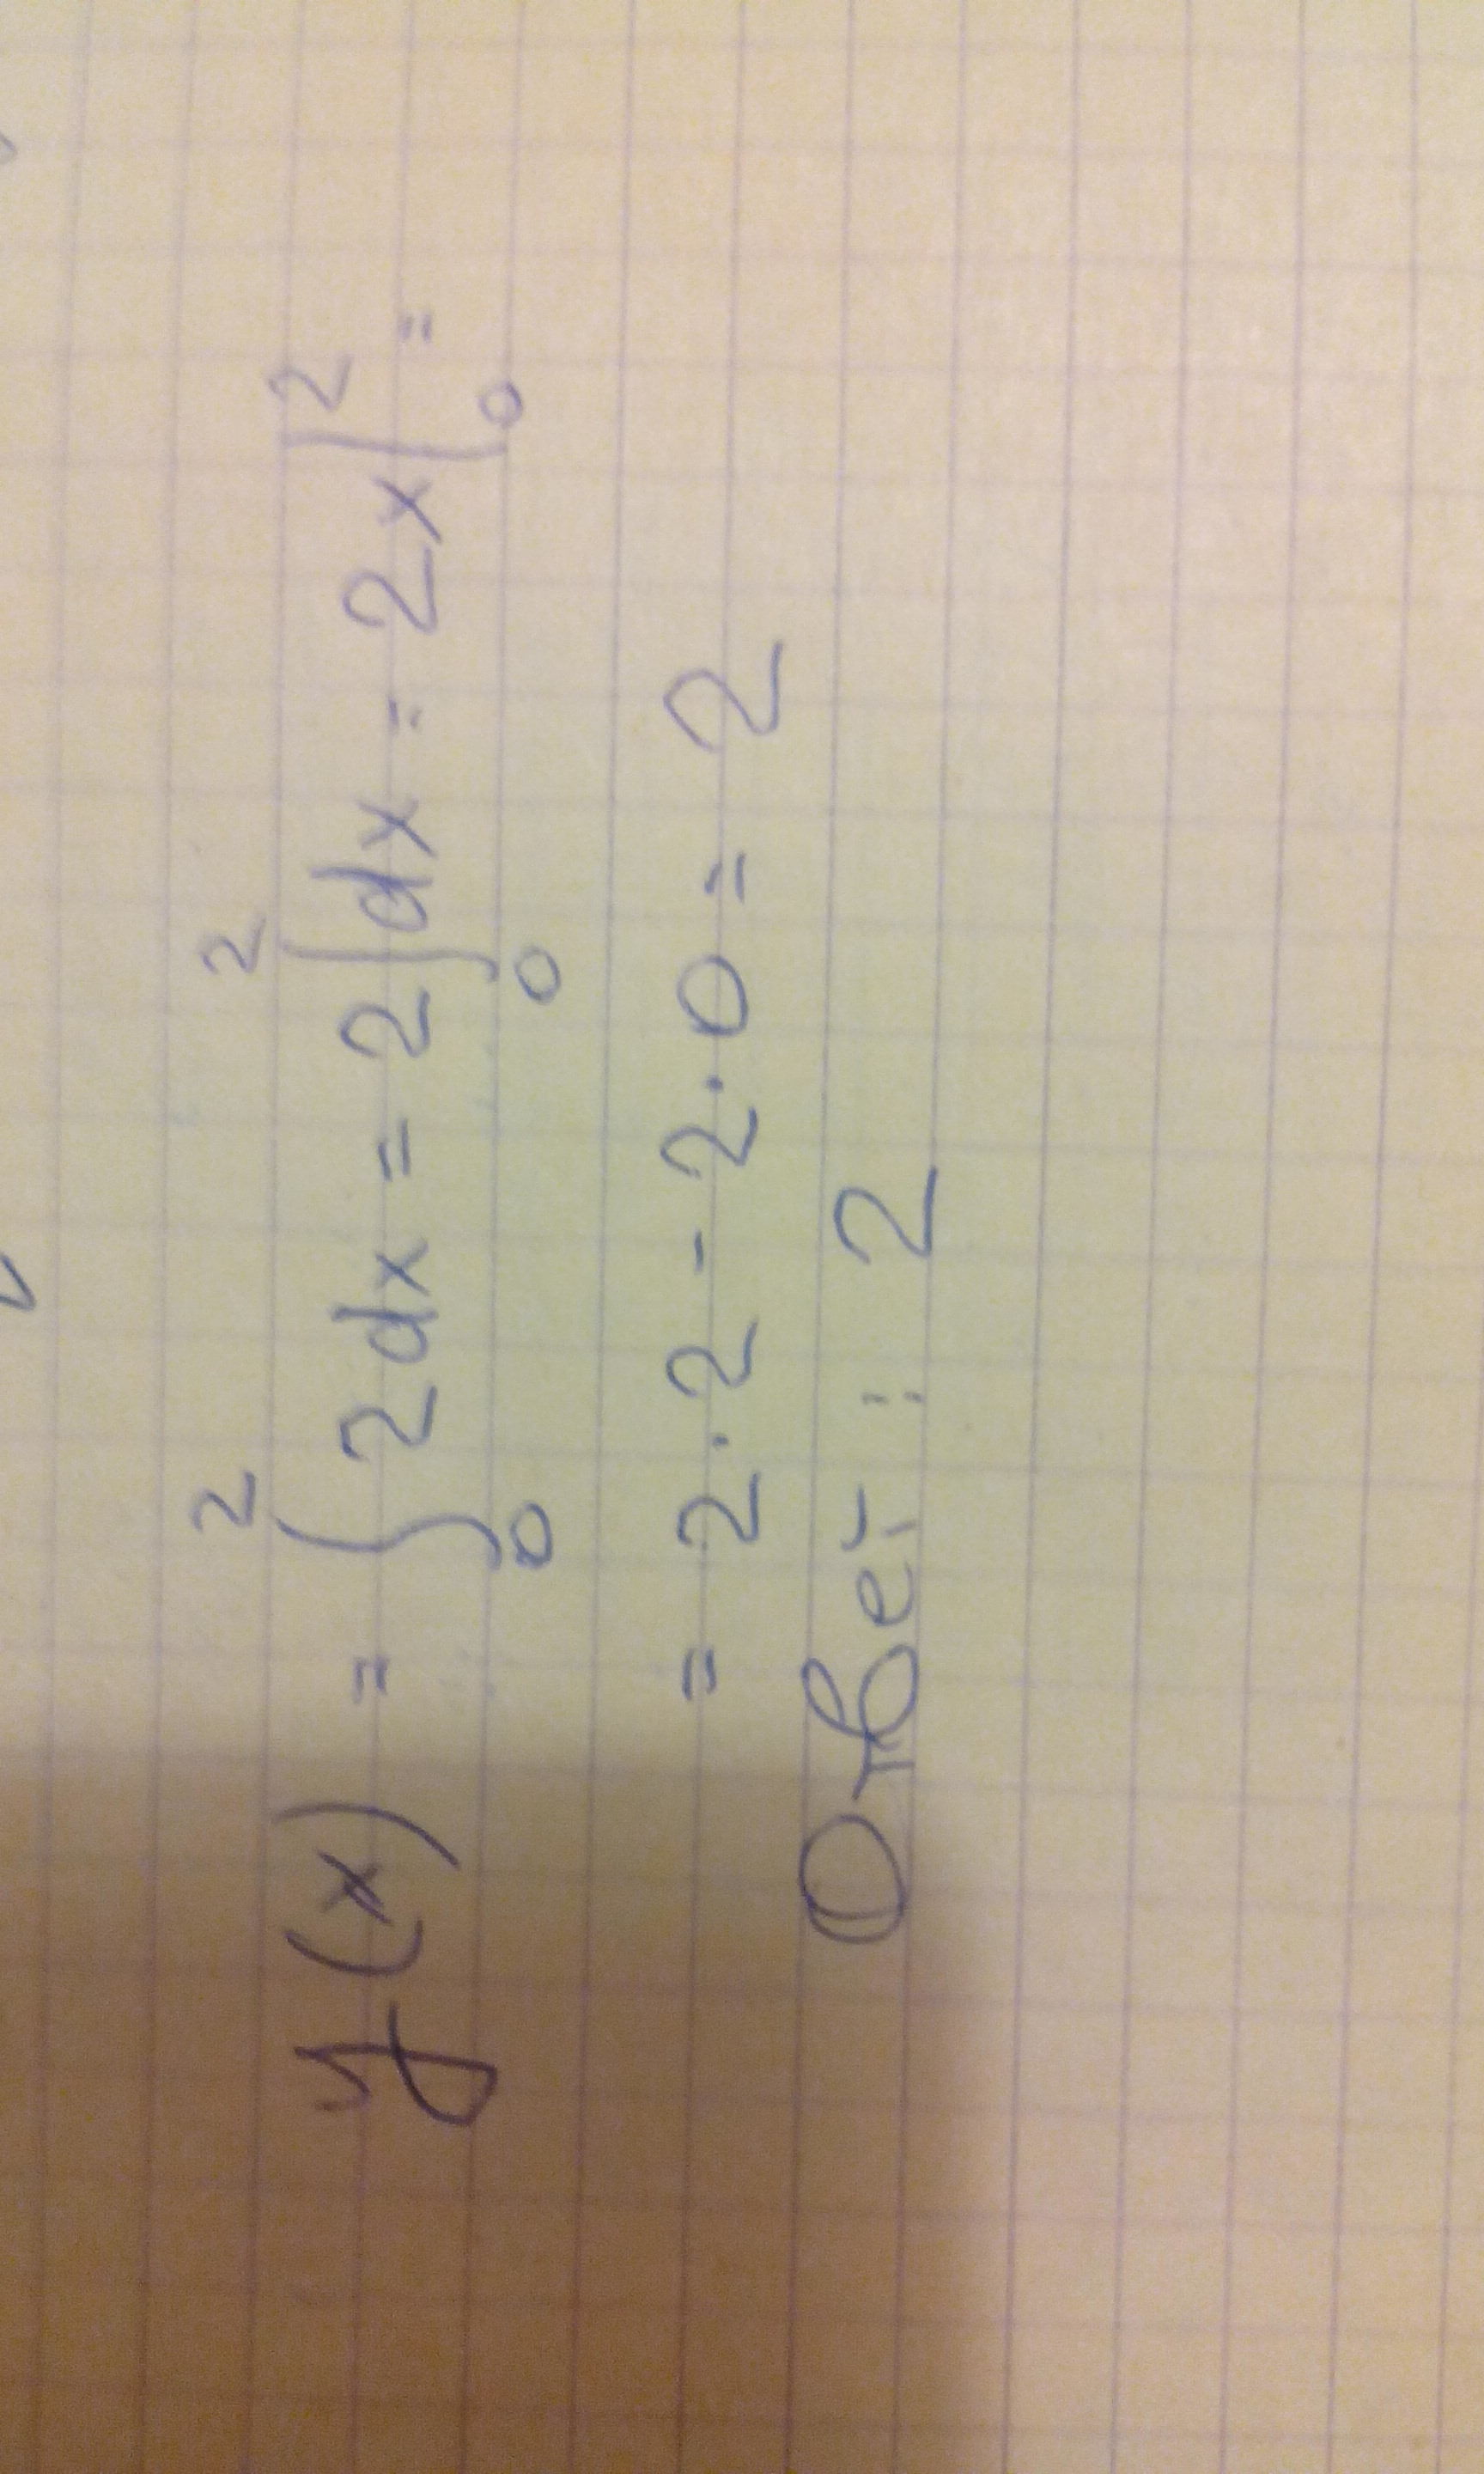 y(x) = ∫₀² 2dx = 2∫₀² dx = 2x|₀² =
= 2·2 - 2·0 = 2
Ответ: 2